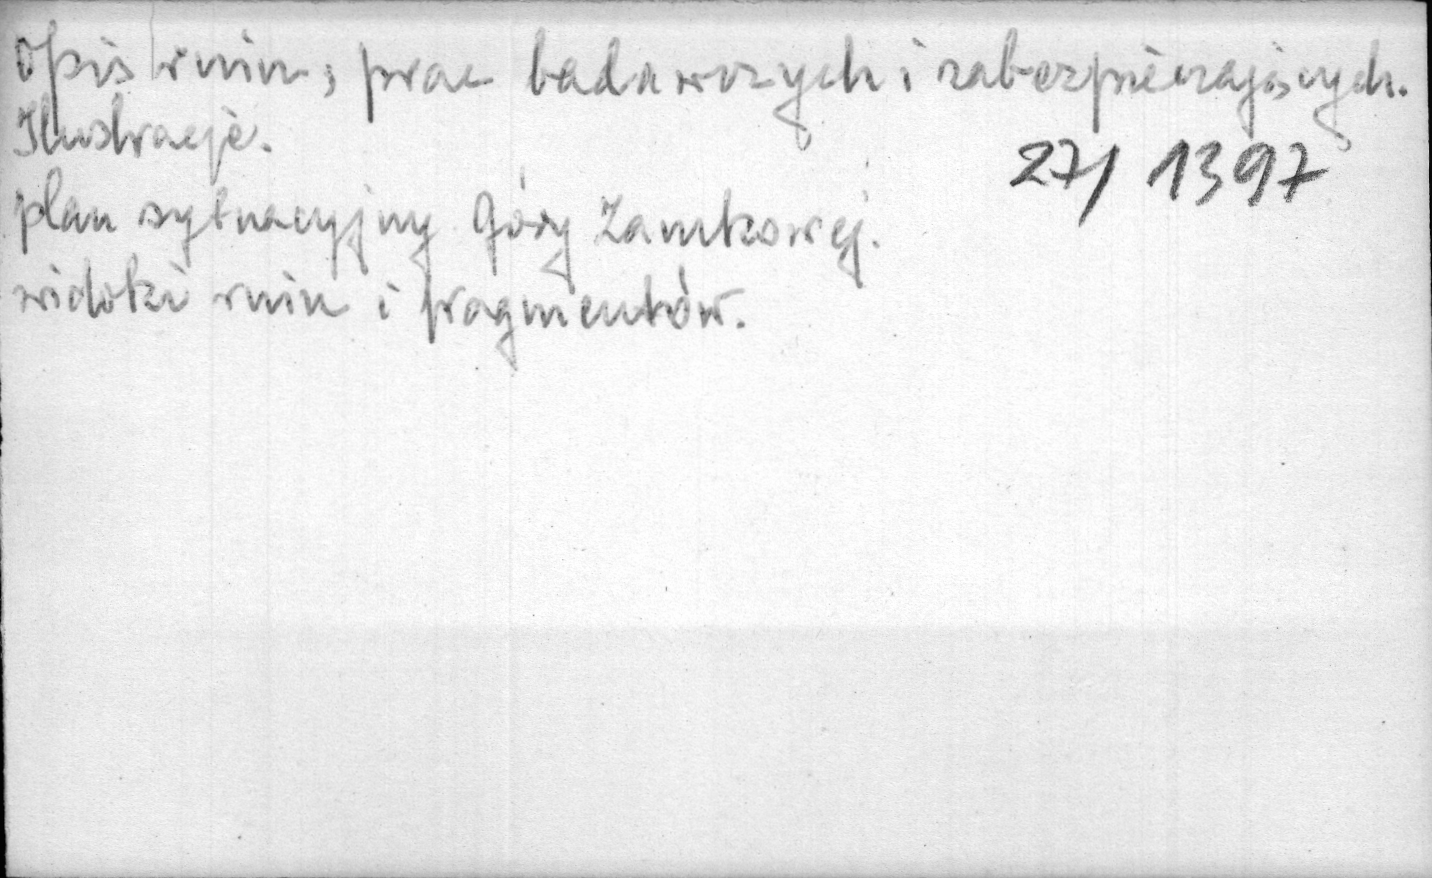 Opis ruin, prac badawczych i zabezpieczających.
Ilustracje.
27/ 1397
plan sytuacyjny Góry Zamkowej.
widoki ruin i fragmentów.